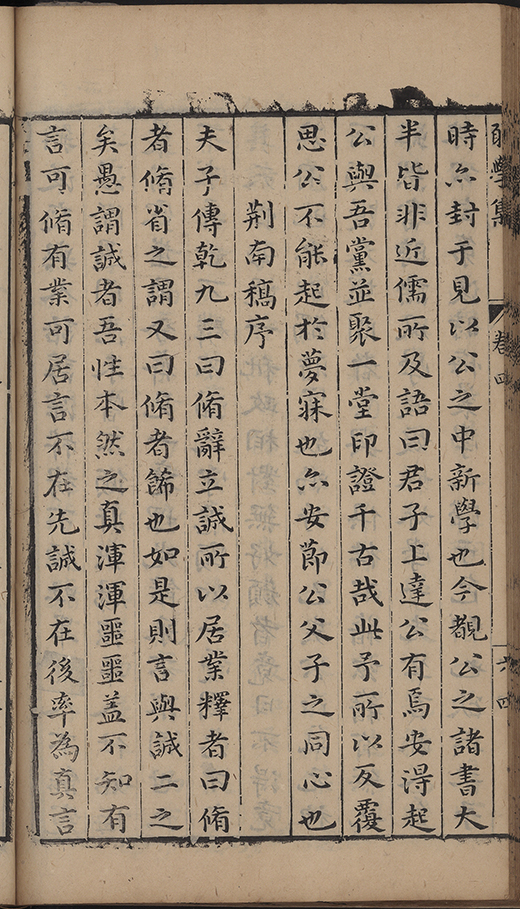 學集
卷四
六四
時亦封于見以公之中新學也今覩公之諸書大
半皆非近儒所及語曰君子上達公有焉安得起
公與吾黨並聚一堂印證千古哉此予所以反覆
思公不能起於夢寐也亦安節公父子之同心也
荆南稿序
夫子傳乾九三曰脩辭立誠所以居業釋者曰脩
者脩省之謂又曰脩者餙也如是則言與誠二之
矣愚謂誠者吾性本然之真渾渾噩噩盖不知有
言可脩有業可居言不在先誠不在後率為真言